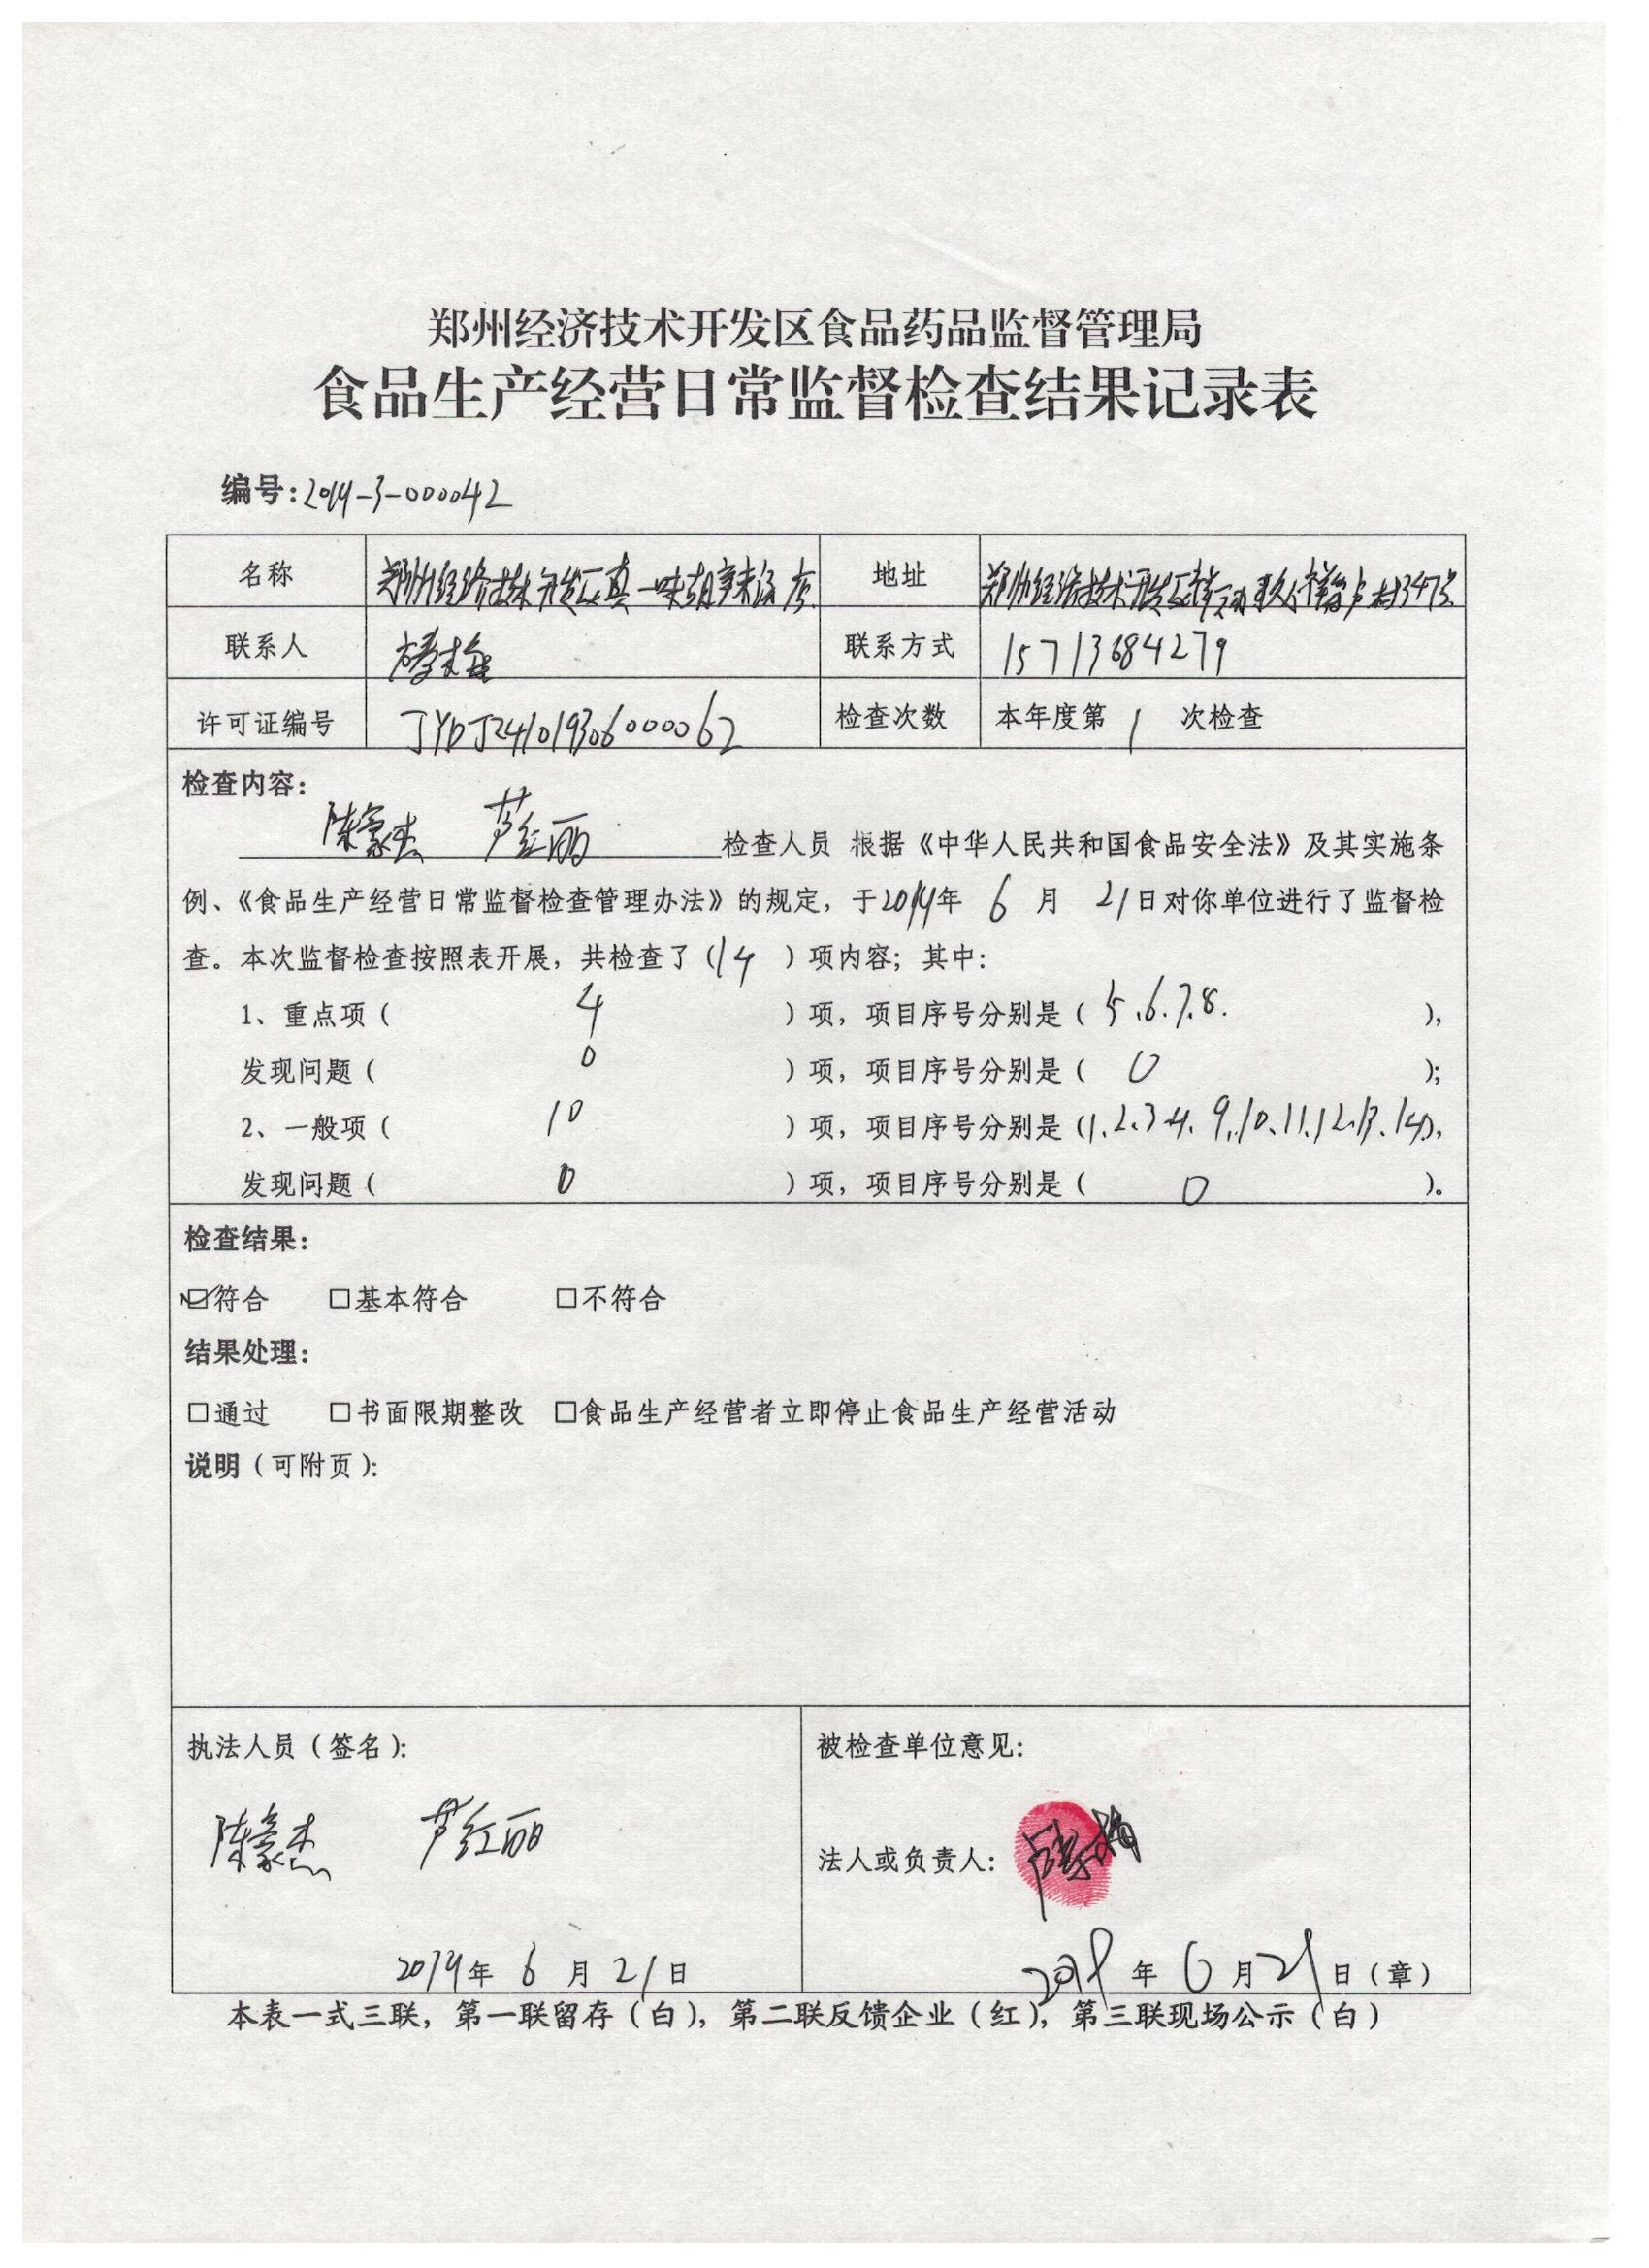 郑州经济技术开发区食品药品监督管理局
食品生产经营日常监督检查结果记录表
编号:2019-3-000042
名称 郑州经济技术开发区真一味胡辣汤店 地址 郑州经济技术开发区 347号
联系人 联系方式 15713684279
许可证编号 JYDJ241019306000062 检查次数 本年度第 1 次检查
检查内容:
陈豪杰 芦红丽 检查人员 根据《中华人民共和国食品安全法》及其实施条
例、《食品生产经营日常监督检查管理办法》的规定,于2019年 6 月 21日对你单位进行了监督检
查。本次监督检查按照表开展,共检查了(14)项内容;其中:
1、重点项(4)项,项目序号分别是(5.6.7.8.),
发现问题(0)项,项目序号分别是(0);
2、一般项(10)项,项目序号分别是(1.2.3.4.9.10.11.12.13.14),
发现问题(0)项,项目序号分别是(0)。
检查结果:
☑符合 □基本符合 □不符合
结果处理:
□通过 □书面限期整改 □食品生产经营者立即停止食品生产经营活动
说明(可附页):
执法人员(签名): 被检查单位意见:
陈豪杰 芦红丽 法人或负责人:
2019年 6 月 21日 2019年 6 月 21日(章)
本表一式三联,第一联留存(白),第二联反馈企业(红),第三联现场公示(白)